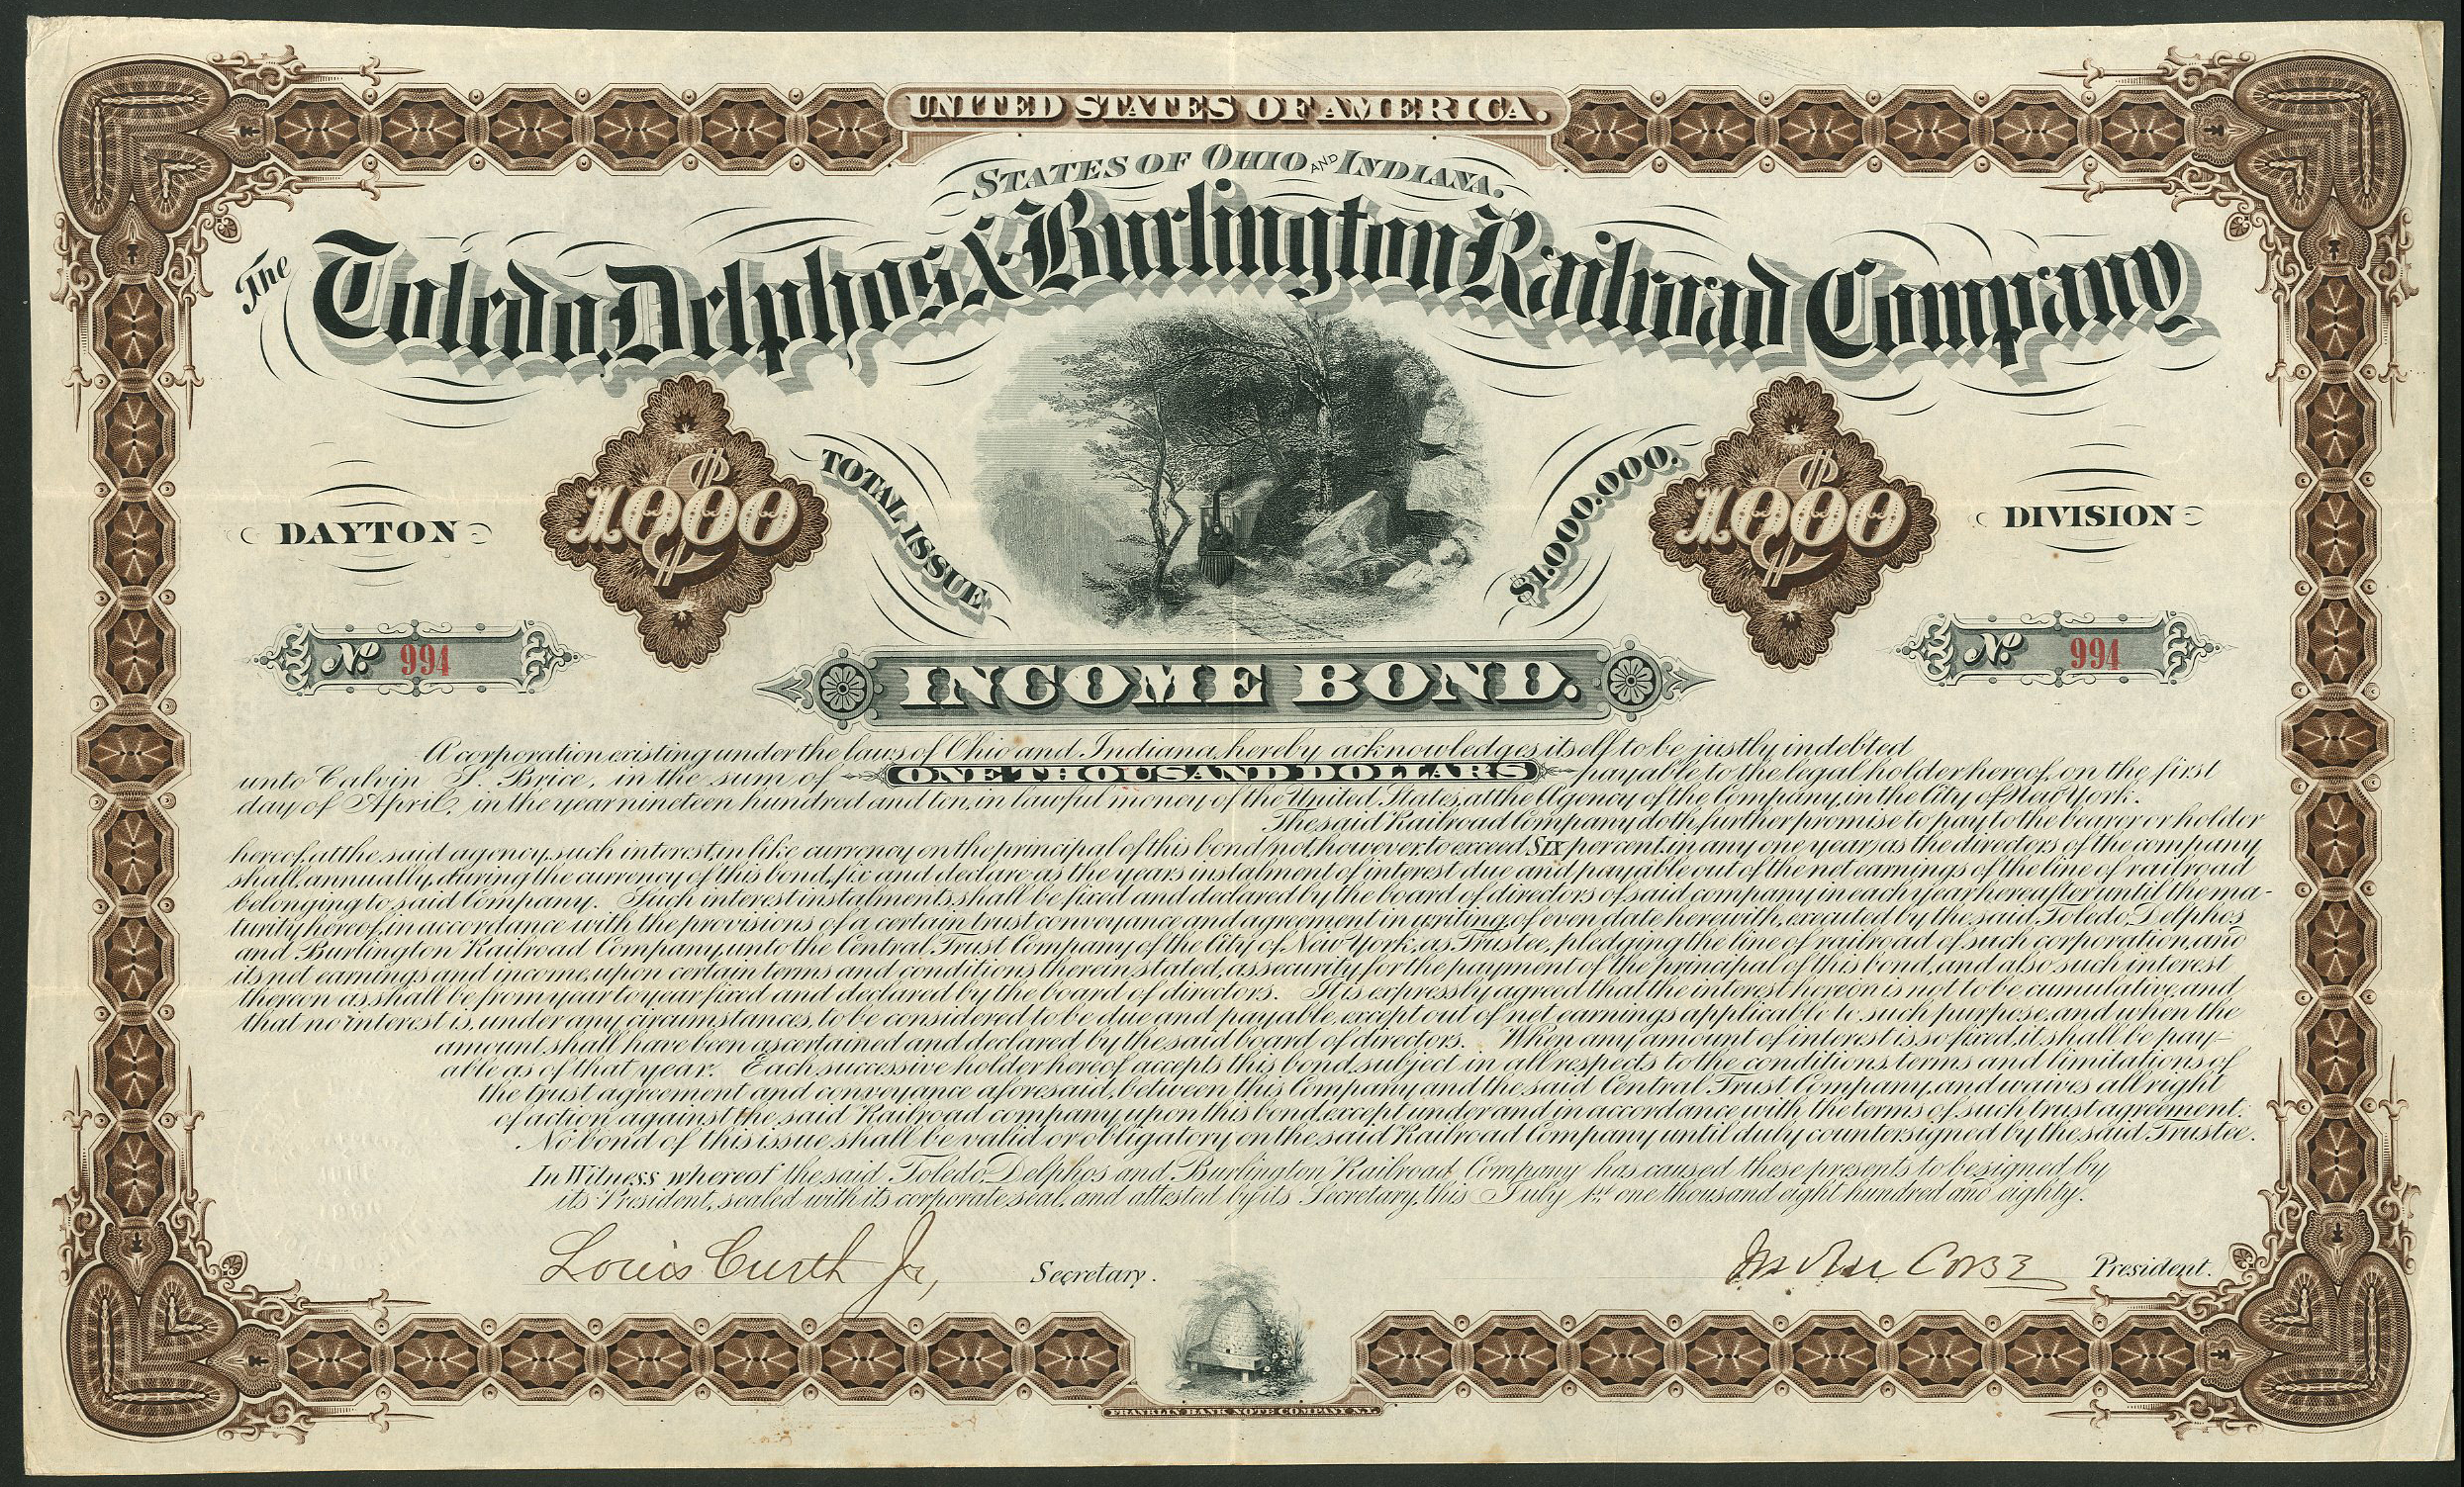 UNITED STATES OF AMERICA.
STATES OF OHIO AND INDIANA.
The Toledo, Delphos & Burlington Railroad Company
DAYTON
$1000
TOTAL ISSUE
$1,000,000.
$1000
DIVISION
No. 994
No. 994
INCOME BOND.
A corporation existing under the laws of Ohio and Indiana, hereby acknowledges itself to be justly indebted
unto Calvin S. Brice, in the sum of ONE THOUSAND DOLLARS payable to the legal holder hereof, on the first
day of April, in the year nineteen hundred and ten, in lawful money of the United States, at the Agency of the Company, in the City of New York.
The said Railroad Company doth further promise to pay to the bearer or holder
hereof, at the said agency, such interest, in like currency on the principal of this bond (not, however, to exceed SIX per cent. in any one year) as the directors of the company
shall, annually, during the currency of this bond, fix and declare as the years instalment of interest due and payable out of the net earnings of the line of railroad
belonging to said Company. Such interest instalments, shall be fixed and declared by the board of directors of said company in each year hereafter until the ma-
turity hereof, in accordance with the provisions of a certain trust conveyance and agreement in writing, of even date herewith, executed by the said, Toledo, Delphos
and Burlington Railroad Company, unto the Central Trust Company of the City of New York, as Trustee, pledging the line of railroad of such corporation, and
its net earnings and income, upon certain terms and conditions therein stated, as security for the payment of the principal of this bond, and also such interest
thereon as shall be from year to year fixed and declared by the board of directors. It is expressly agreed that the interest hereon is not to be cumulative, and
that no interest is, under any circumstances, to be considered to be due and payable, except out of net earnings applicable to such purpose, and when the
amount, shall have been ascertained and declared by the said board of directors. When any amount of interest is so fixed, it shall be pay-
able as of that year. Each successive holder hereof accepts this bond, subject in all respects to the conditions, terms and limitations of
the trust agreement and conveyance aforesaid, between this Company, and the said Central Trust Company, and waives all right
of action against the said Railroad company upon this bond, except under and in accordance with the terms of such trust agreement.
No bond of this issue shall be valid or obligatory on the said Railroad Company until duly countersigned by the said Trustee.
In Witness whereof the said Toledo, Delphos and Burlington Railroad Company has caused these presents to be signed by
its President, sealed with its corporate seal, and attested by its Secretary, this July 1st one thousand eight hundred and eighty.
Louis Curth Jr, Secretary.
Corse President.
FRANKLIN BANK NOTE COMPANY N.Y.